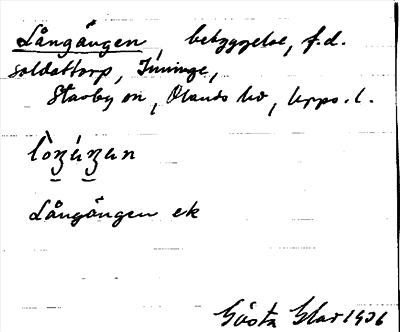 Långängen, bebyggelse, f.d.
soldattorp, Imninge,
Stavby sn, Olands hd, Upps. l.
Långängen ek
Gösta 1936